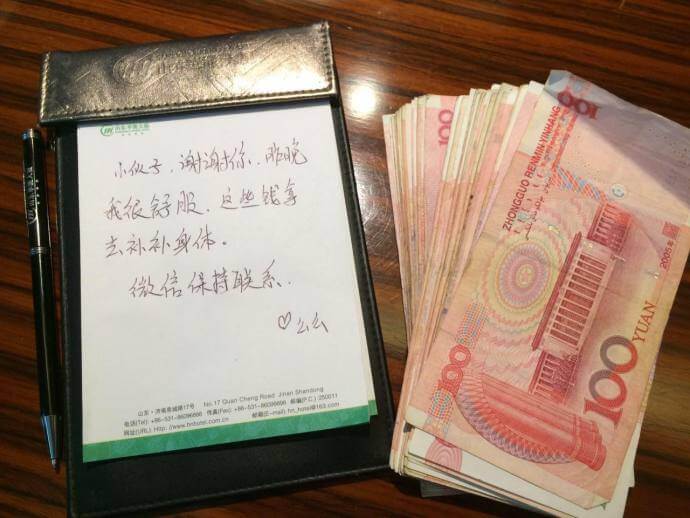 小伙子，谢谢你，昨晚
我很舒服，这些钱拿
去补补身体。
微信保持联系.
♡么么
山东·济南泉城路17号 No.17 Quan Cheng Road Jinan Shandong
电话(Tel): +86-531-86096666 传真(Fax): +86-531-86096666 邮编(P.C.) 250011
网址(URL): Http://www.hnhotel.com.cn 邮箱(E-mail): hn_hotel@163.com
ZHONGGUO RENMIN YINHANG
2005年
100 YUAN
100
100